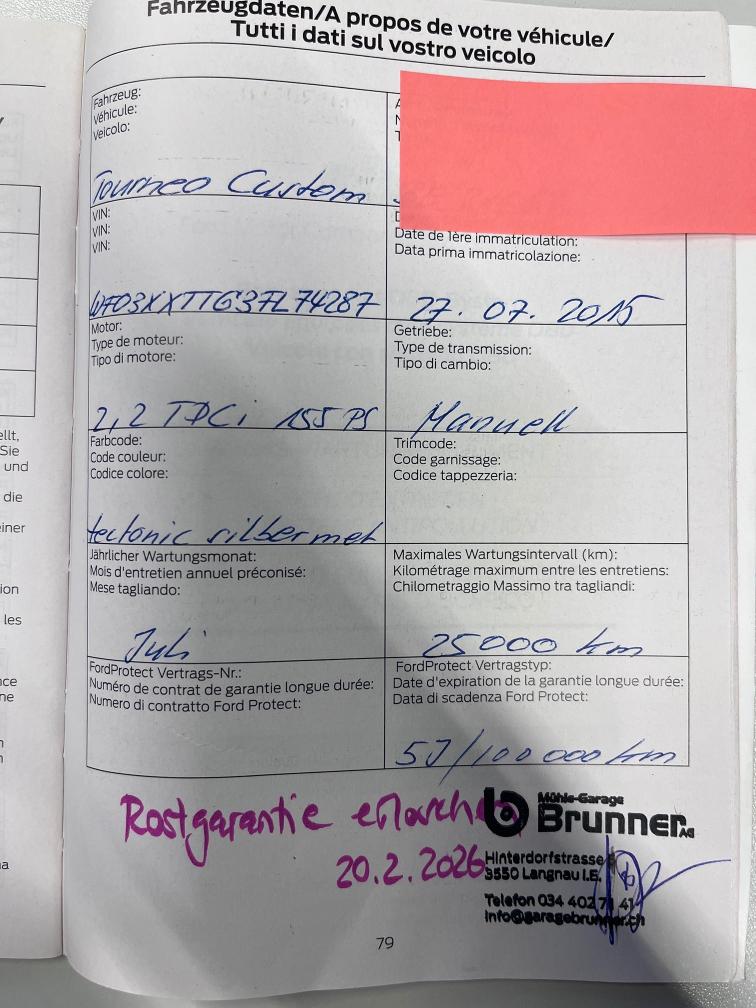 Fahrzeugdaten/A propos de votre véhicule/
Tutti i dati sul vostro veicolo
Fahrzeug:
Véhicule:
Veicolo:
Tourneo Custom
VIN:
VIN:
VIN:
WF03XXTTG3FL74287
Date de 1ère immatriculation:
Data prima immatricolazione:
27. 07. 2015
Motor:
Type de moteur:
Tipo di motore:
2,2 TDCi 155 PS
Getriebe:
Type de transmission:
Tipo di cambio:
Manuell
Farbcode:
Code couleur:
Codice colore:
tectonic silber met
Trimcode:
Code garnissage:
Codice tappezzeria:
Jährlicher Wartungsmonat:
Mois d'entretien annuel préconisé:
Mese tagliando:
Juli
Maximales Wartungsintervall (km):
Kilométrage maximum entre les entretiens:
Chilometraggio Massimo tra tagliandi:
25000 km
FordProtect Vertrags-Nr.:
Numéro de contrat de garantie longue durée:
Numero di contratto Ford Protect:
FordProtect Vertragstyp:
Date d'expiration de la garantie longue durée:
Data di scadenza Ford Protect:
5J/100 000 km
Rostgarantie
20.2.2026
Mühle-Garage
Brunner AG
Hinterdorfstrasse
3550 Langnau I.E.
Telefon 034 402 71 41
info@garagebrunner.ch
79
ellt,
Sie
und
die
einer
les